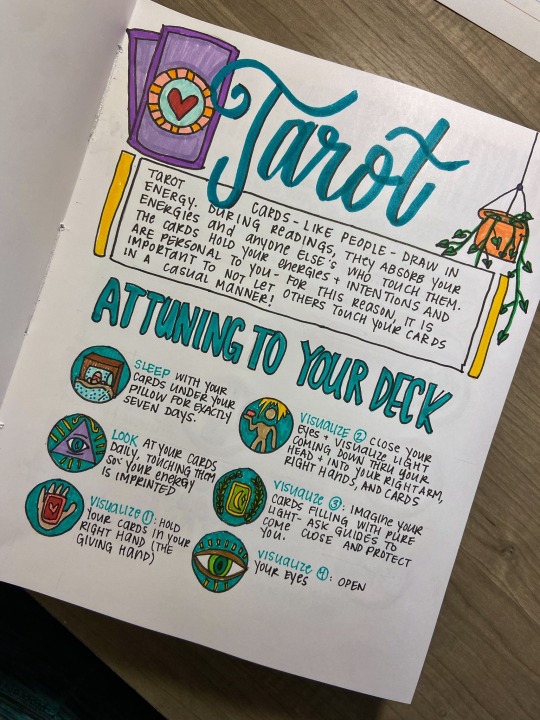 Tarot
TAROT CARDS - LIKE PEOPLE - DRAW IN
ENERGY. DURING READINGS, THEY ABSORB YOUR
ENERGIES and ANYONE ELSE'S WHO TOUCH THEM.
THE CARDS HOLD YOUR ENERGIES + INTENTIONS AND
ARE PERSONAL TO YOU - FOR THIS REASON, IT IS
IMPORTANT TO NOT LET OTHERS TOUCH YOUR CARDS
IN A CASUAL MANNER!
ATTUNING TO YOUR DECK
SLEEP WITH YOUR
CARDS UNDER YOUR
PILLOW FOR EXACTLY
SEVEN DAYS.
LOOK AT YOUR CARDS
DAILY, TOUCHING THEM
SO YOUR ENERGY
IS IMPRINTED
VISUALIZE ①: HOLD
YOUR CARDS IN YOUR
RIGHT HAND (THE
GIVING HAND)
VISUALIZE ② CLOSE YOUR
EYES + VISUALIZE LIGHT
COMING DOWN THRU YOUR
HEAD + INTO YOUR RIGHT ARM,
RIGHT HANDS, AND CARDS
VISUALIZE ③: IMAGINE YOUR
CARDS FILLING WITH PURE
LIGHT - ASK GUIDES TO
COME CLOSE AND PROTECT
YOU.
VISUALIZE ④: OPEN
YOUR EYES